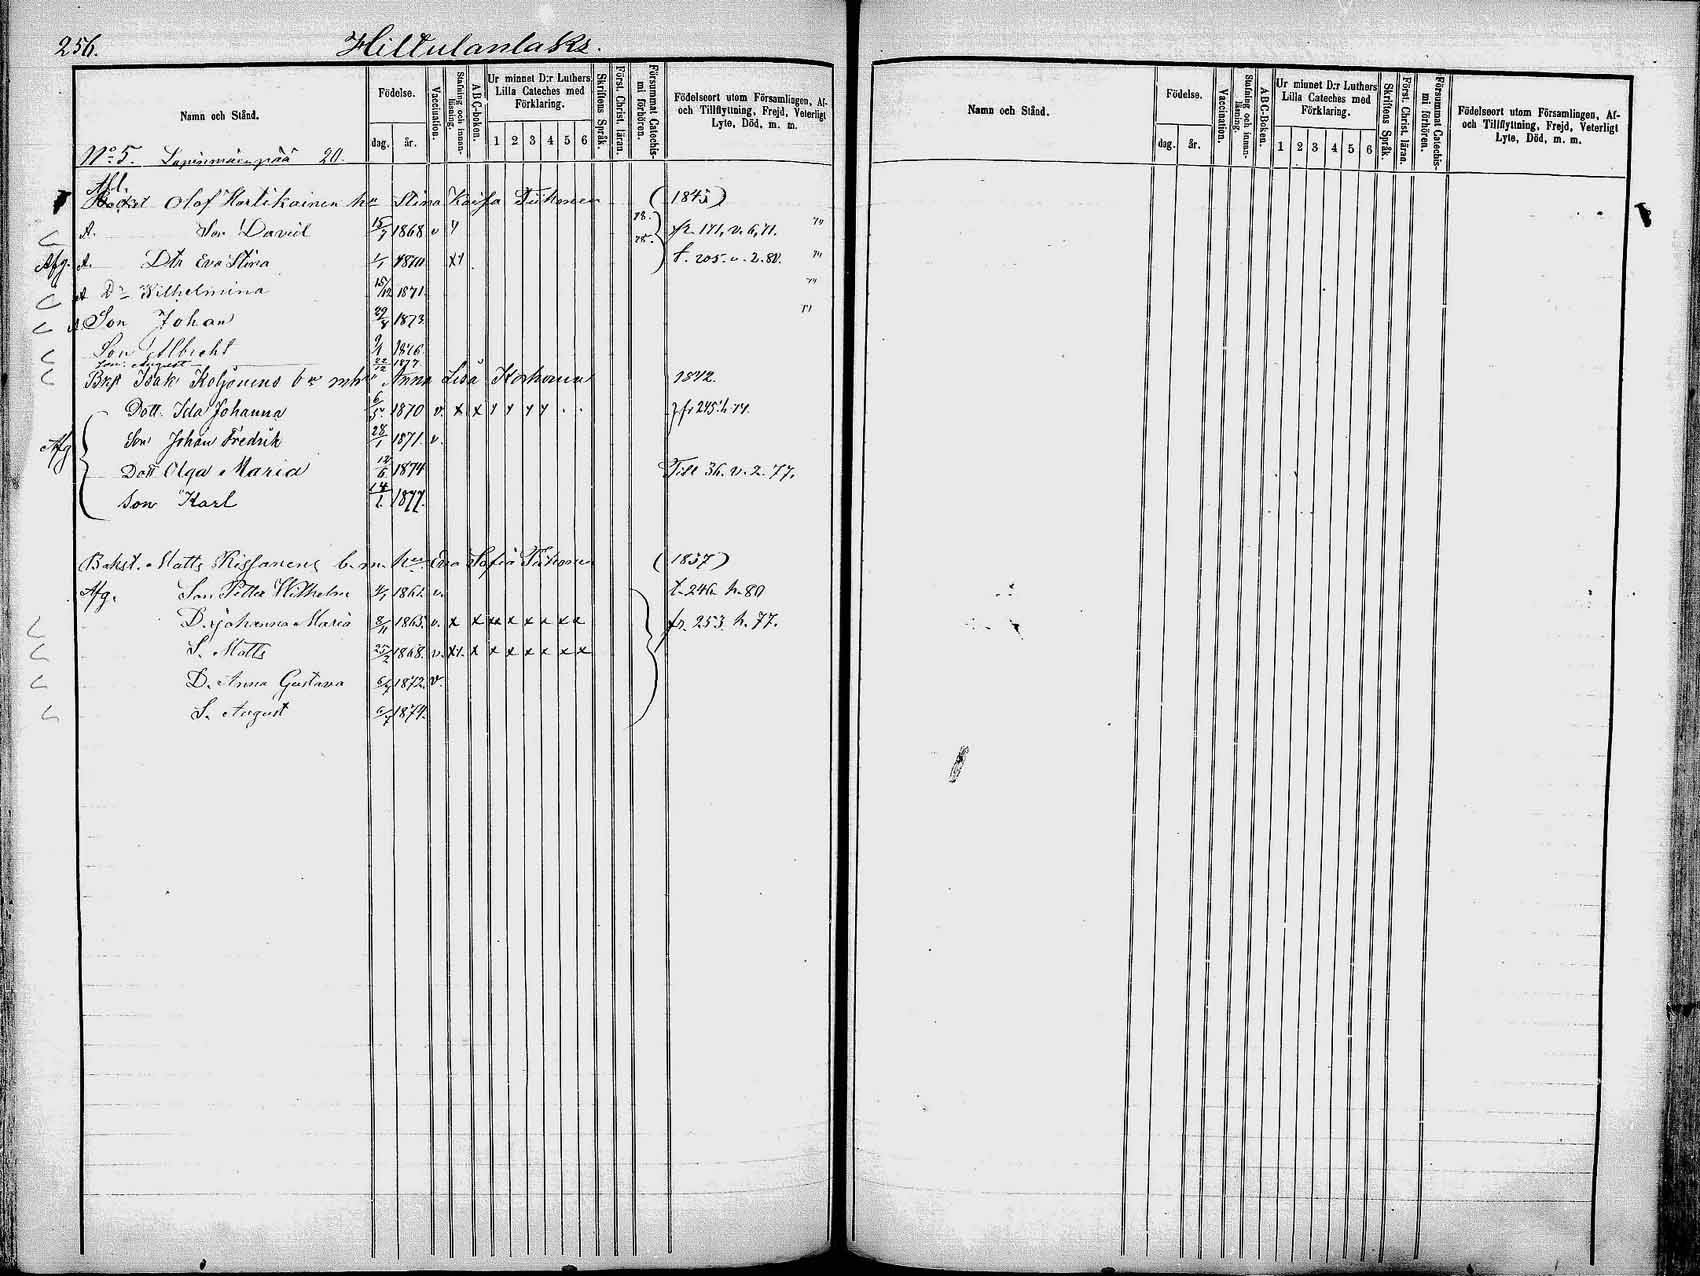 256. Hiltulanlaks.
Namn och Stånd.
Födelse.
dag. år.
Vaccination.
Stafning och innan-läsning.
A B C-boken.
Ur minnet D:r Luthers Lilla Cateches med Förklaring.
1 2 3 4 5 6
Skriftens Språk.
Först. Christ. läran.
Försummat Catechis-mi förhören.
Födelseort utom Församlingen, Af- och Tillflyttning, Frejd, Veterligt Lyte, Död, m. m.
No 5. 20.
Afl.
Olof Karttikainen hu Stina Kaisa Tiihonen (1845)
A. Son David 15/7 1868 v y 78. fr. 171, v. 6, 71. "
Afg. A. Dtr Eva Stina 1/1 1870 x1. 75. t. 205. v. 2. 80. "
A Dr Wilhelmina 15/12 1871. "
A Son Johan 29/8 1873. "
Son Albrecht 9/1 1876.
Son August 22/12 1877
Isak Koljonens Anna Lisa Korhonen 1842.
Dott. Ida Johanna 6/5 1870 v. x x y y y y . . fr 245. h. 77.
Afg Son Johan Fredrik 28/1 1871. v.
Dott Olga Maria 12/6 1874 Till 36. v. 2. 77.
Son Karl 14/1. 1877.
Bakst. Matts Rissanens b. m. hu Eva Sofia Tiihonen (1837)
Afg. Son Petter Wilhelm 4/1 1861. v. t. 246 h. 80
D. Johanna Maria 8/11 1865. v. x x xx x x x x x fr. 253 h. 77.
S. Matts 25/2 1868. v. x1. x x x x x x x
D. Anna Gustava 6/4 1872. v.
S. August 6/7 1874.
Namn och Stånd.
Födelse.
dag. år.
Vaccination.
Stafning och innan-läsning.
A B C-Boken.
Ur minnet D:r Luthers Lilla Cateches med Förklaring.
1 2 3 4 5 6
Skriftens Språk.
Först. Christ. läran.
Försummat Catechis-mi förhören.
Födelseort utom Församlingen, Af- och Tillflyttning, Frejd, Veterligt Lyte, Död, m. m.